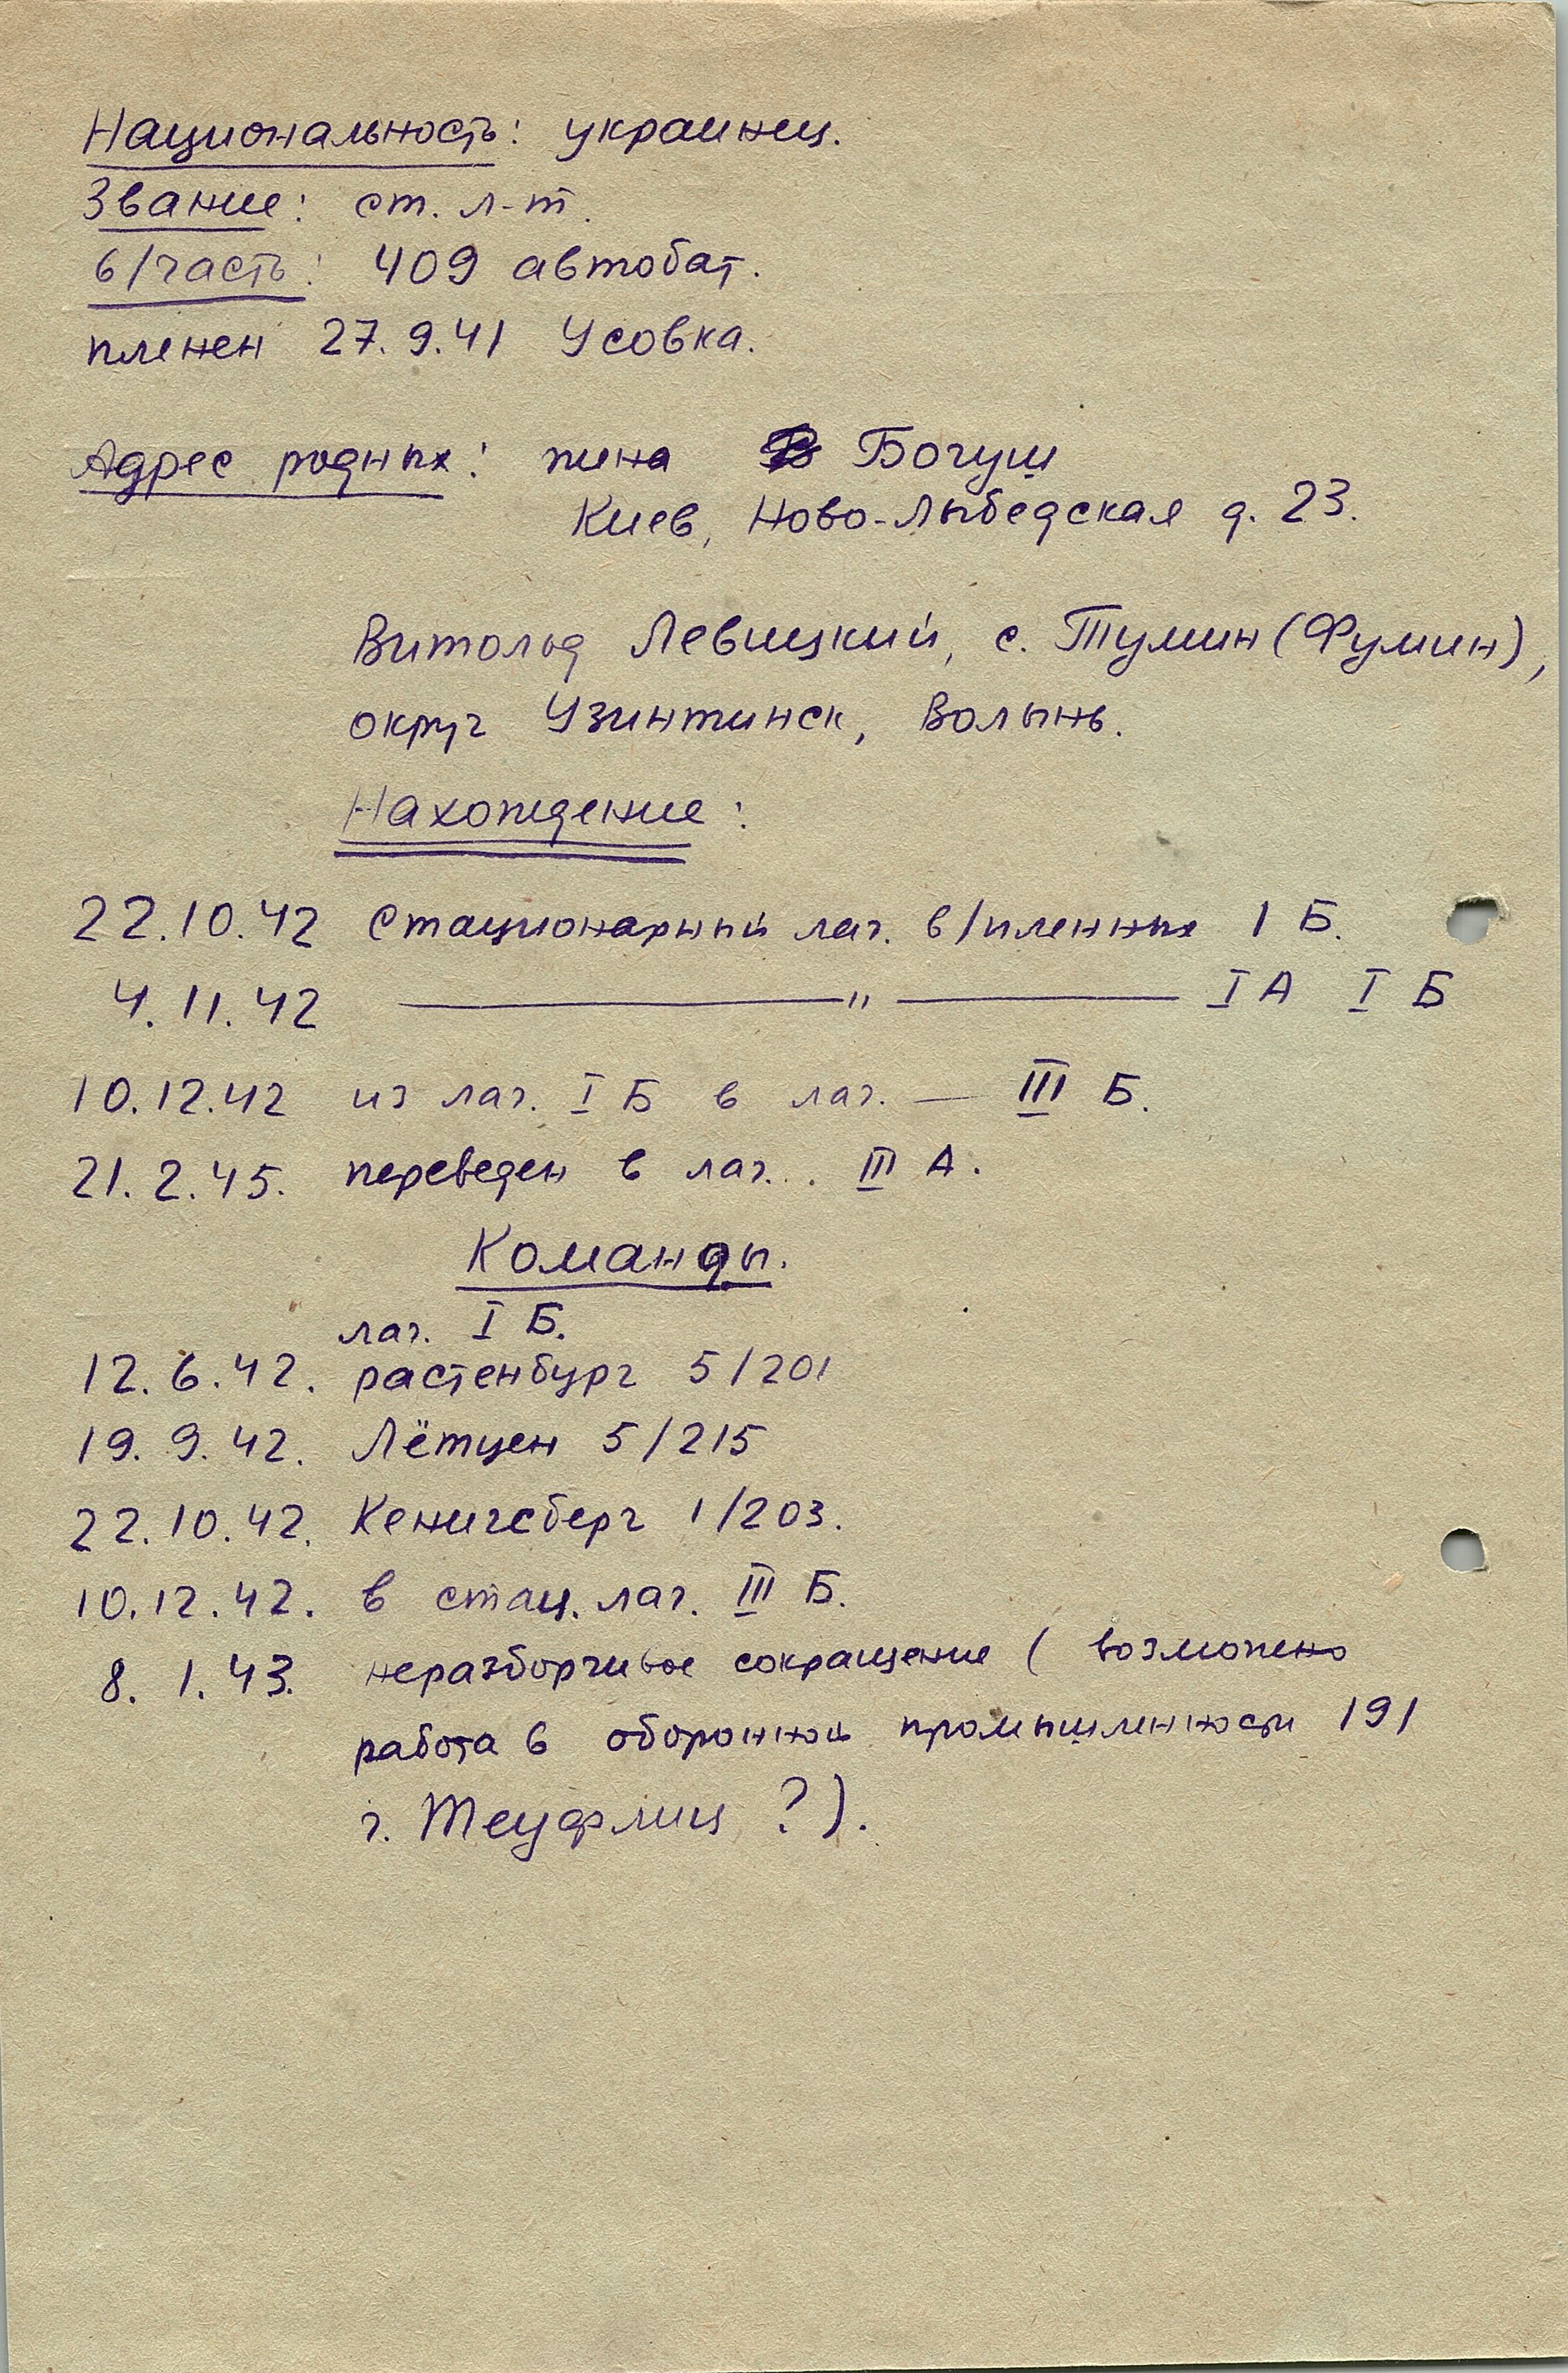 Национальность: украинец.
Звание: ст. л-т.
в/часть: 409 автобат.
пленен 27.9.41 Усовка.
Адрес родных: жена Богуш
Киев, Ново-Лыбедская д. 23.
Витольд Левицкий, с. Тумин (Фумин),
округ Узинтинск, Волынь.
Нахождение:
22.10.42 Стационарный лаг. в/пленных I Б.
4.11.42 ————"———— I А I Б
10.12.42 из лаг. I Б в лаг. — III Б.
21.2.45. переведен в лаг... III А.
Команды.
лаг. I Б.
12.6.42. растенбург 5/201
19.9.42. Лётцен 5/215
22.10.42. Кенигсберг 1/203.
10.12.42. в стац. лаг. III Б.
8.1.43. неразборчивое сокращение (возможно
работа в оборонной промышленности 191
г. Теуфлиц ?).